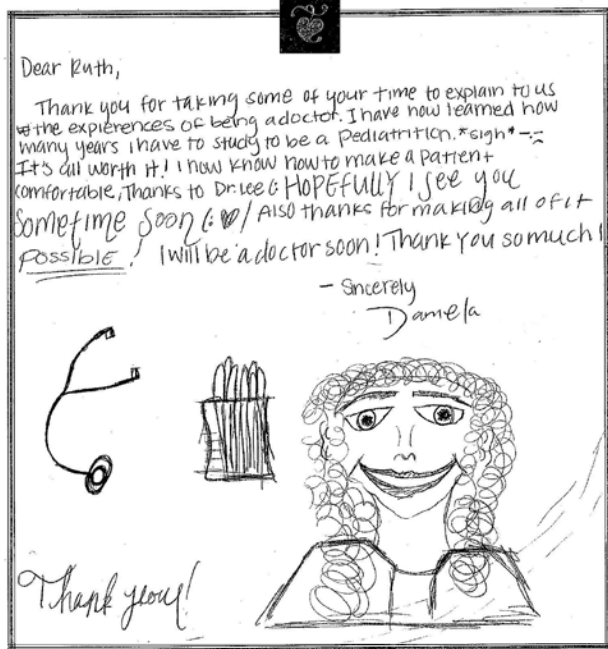 Dear Ruth,
Thank you for taking some of your time to explain to us
the expierences of being a doctor. I have now learned how
many years i have to study to be a Pediatrition. *sigh* -.-
It's all worth it! I now know how to make a patient
comfortable, Thanks to Dr. Lee (: HOPEFULLY I see you
Sometime Soon (: ♥/ Also thanks for making all of it
POSSIBLE! I will be a doctor soon! Thank you so much!
- Sincerely
Damela
Thank you!